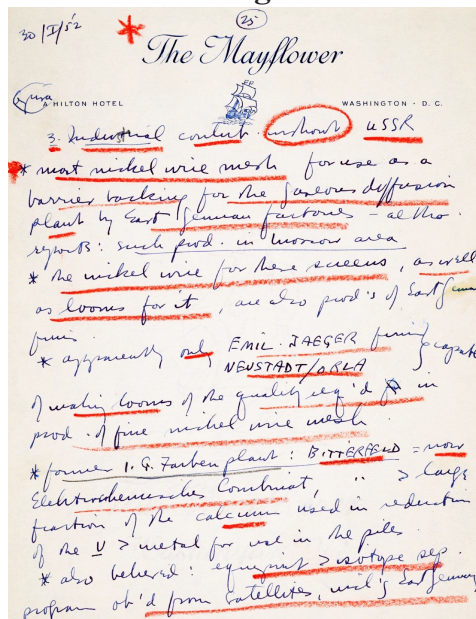 25
30/I/52
The Mayflower
A HILTON HOTEL WASHINGTON · D. C.
3. Industrial contrib. without USSR
* most nickel wire mesh for use as a
barrier backing for the gaseous diffusion
plant by East German factories – altho
reports: such prod. in Moscow area
* the nickel wire for these screens, as well
as looms for it, are also prod's of East German
firms
* apparently only EMIL JAEGER firm capable
NEUSTADT/ORLA
of making looms of the quality req'd in
prod. of fine nickel wire mesh
* former I. G. Farben plant: BITTERFELD = now
Elektrochemisches Combinat, " > large
fraction of the calcium used in reduction
of the U > metal for use in the piles
* also believed: equipment > isotope sep.
program ob'd from satellites, incl'g East Germany